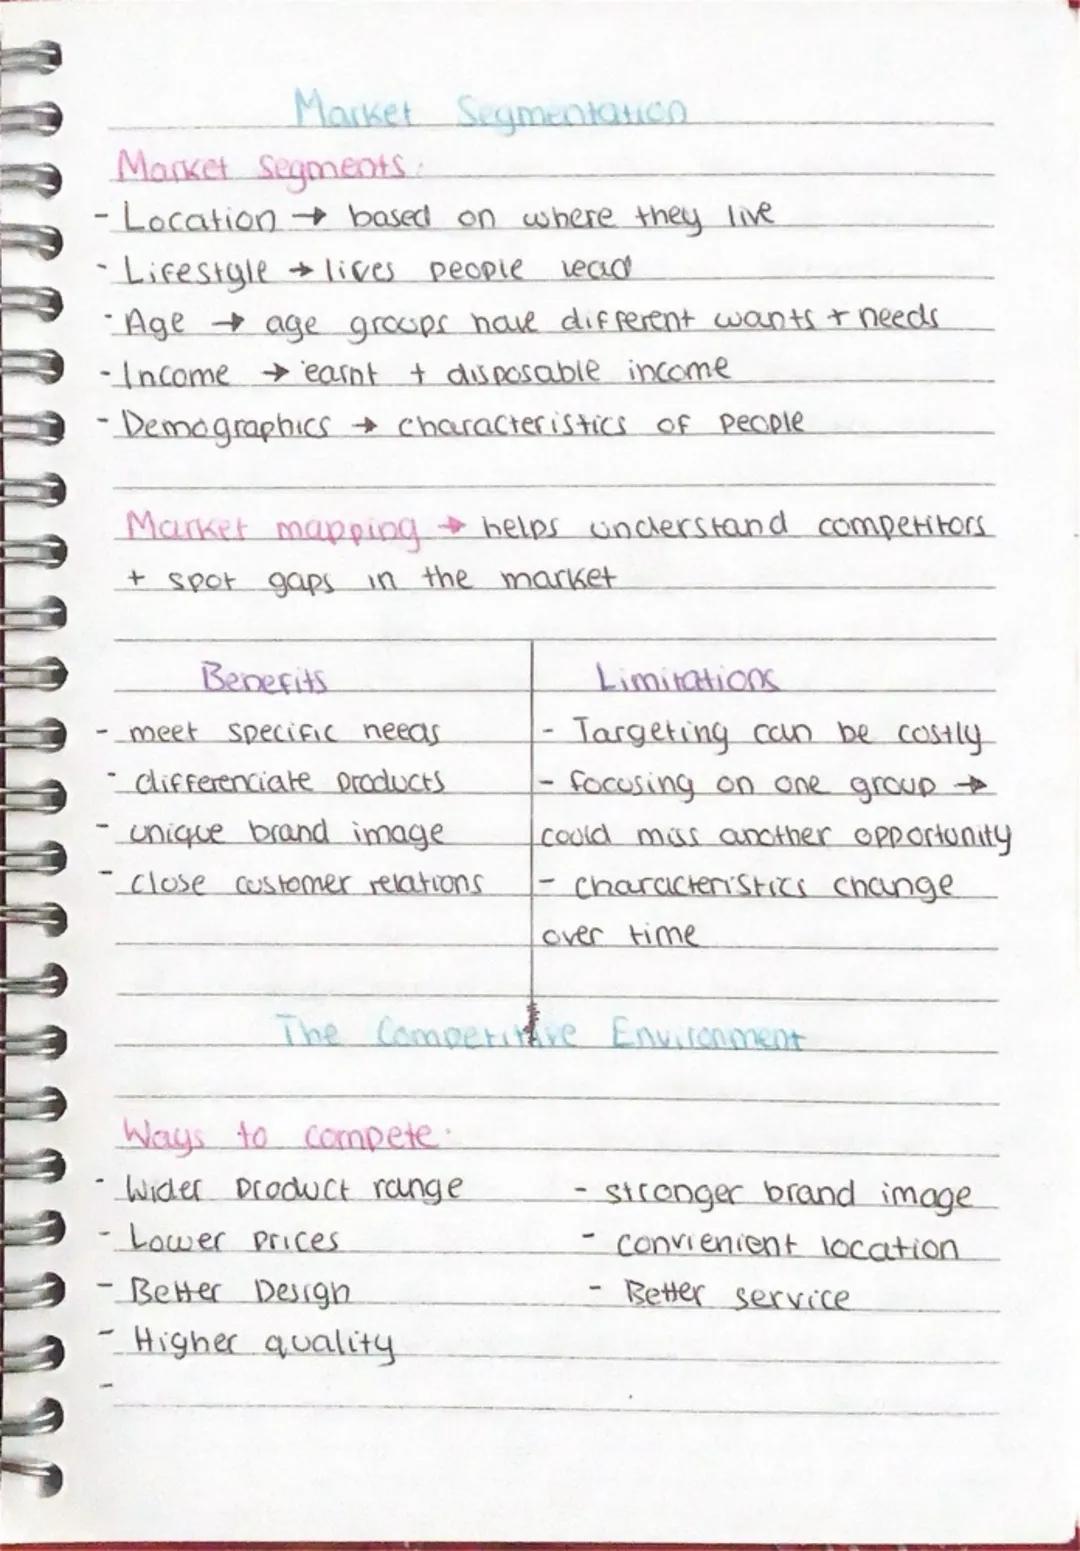 Market Segmentation
Market Segments:
- Location → based on where they live
- Lifestyle → lives people lead
- Age → age groups have different wants + needs
- Income → earnt + disposable income
- Demographics → characteristics of people
Market mapping → helps understand competitors
+ spot gaps in the market
Benefits
- meet specific needs
- differenciate products
- unique brand image
- close customer relations
Limitations
- Targeting can be costly
- focusing on one group →
could miss another opportunity
- characteristics change
over time
The Competitive Environment
Ways to compete:
- Wider product range
- Lower prices
- Better Design
- Higher quality
-
- stronger brand image
- convienient location
- Better service